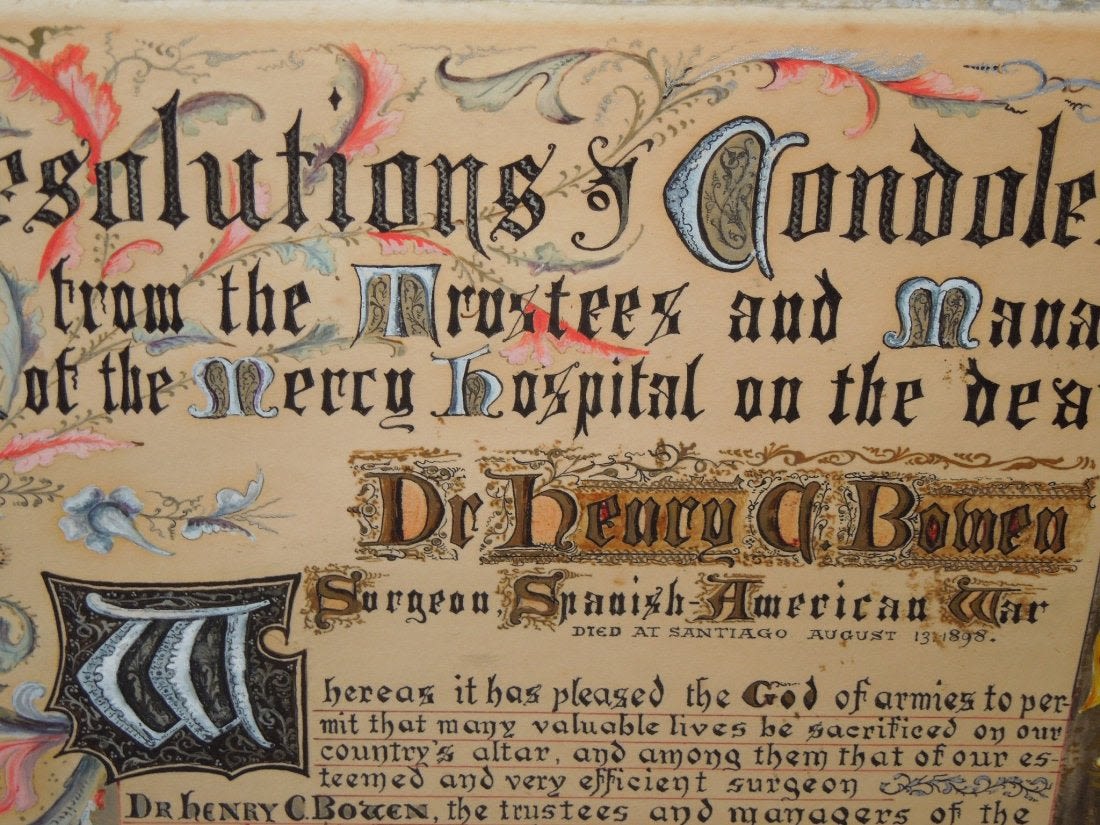 esolutions of Condole
from the Trustees and Mana
of the Mercy Hospital on the dea
Dr Henry C. Bowen
Surgeon, Spanish-American War
DIED AT SANTIAGO AUGUST 13, 1898.
Whereas it has pleased the God of armies to per-
mit that many valuable lives be sacrificed on our
country's altar, and among them that of our es-
teemed and very efficient surgeon
DR HENRY C. BOWEN, the trustees and managers of the